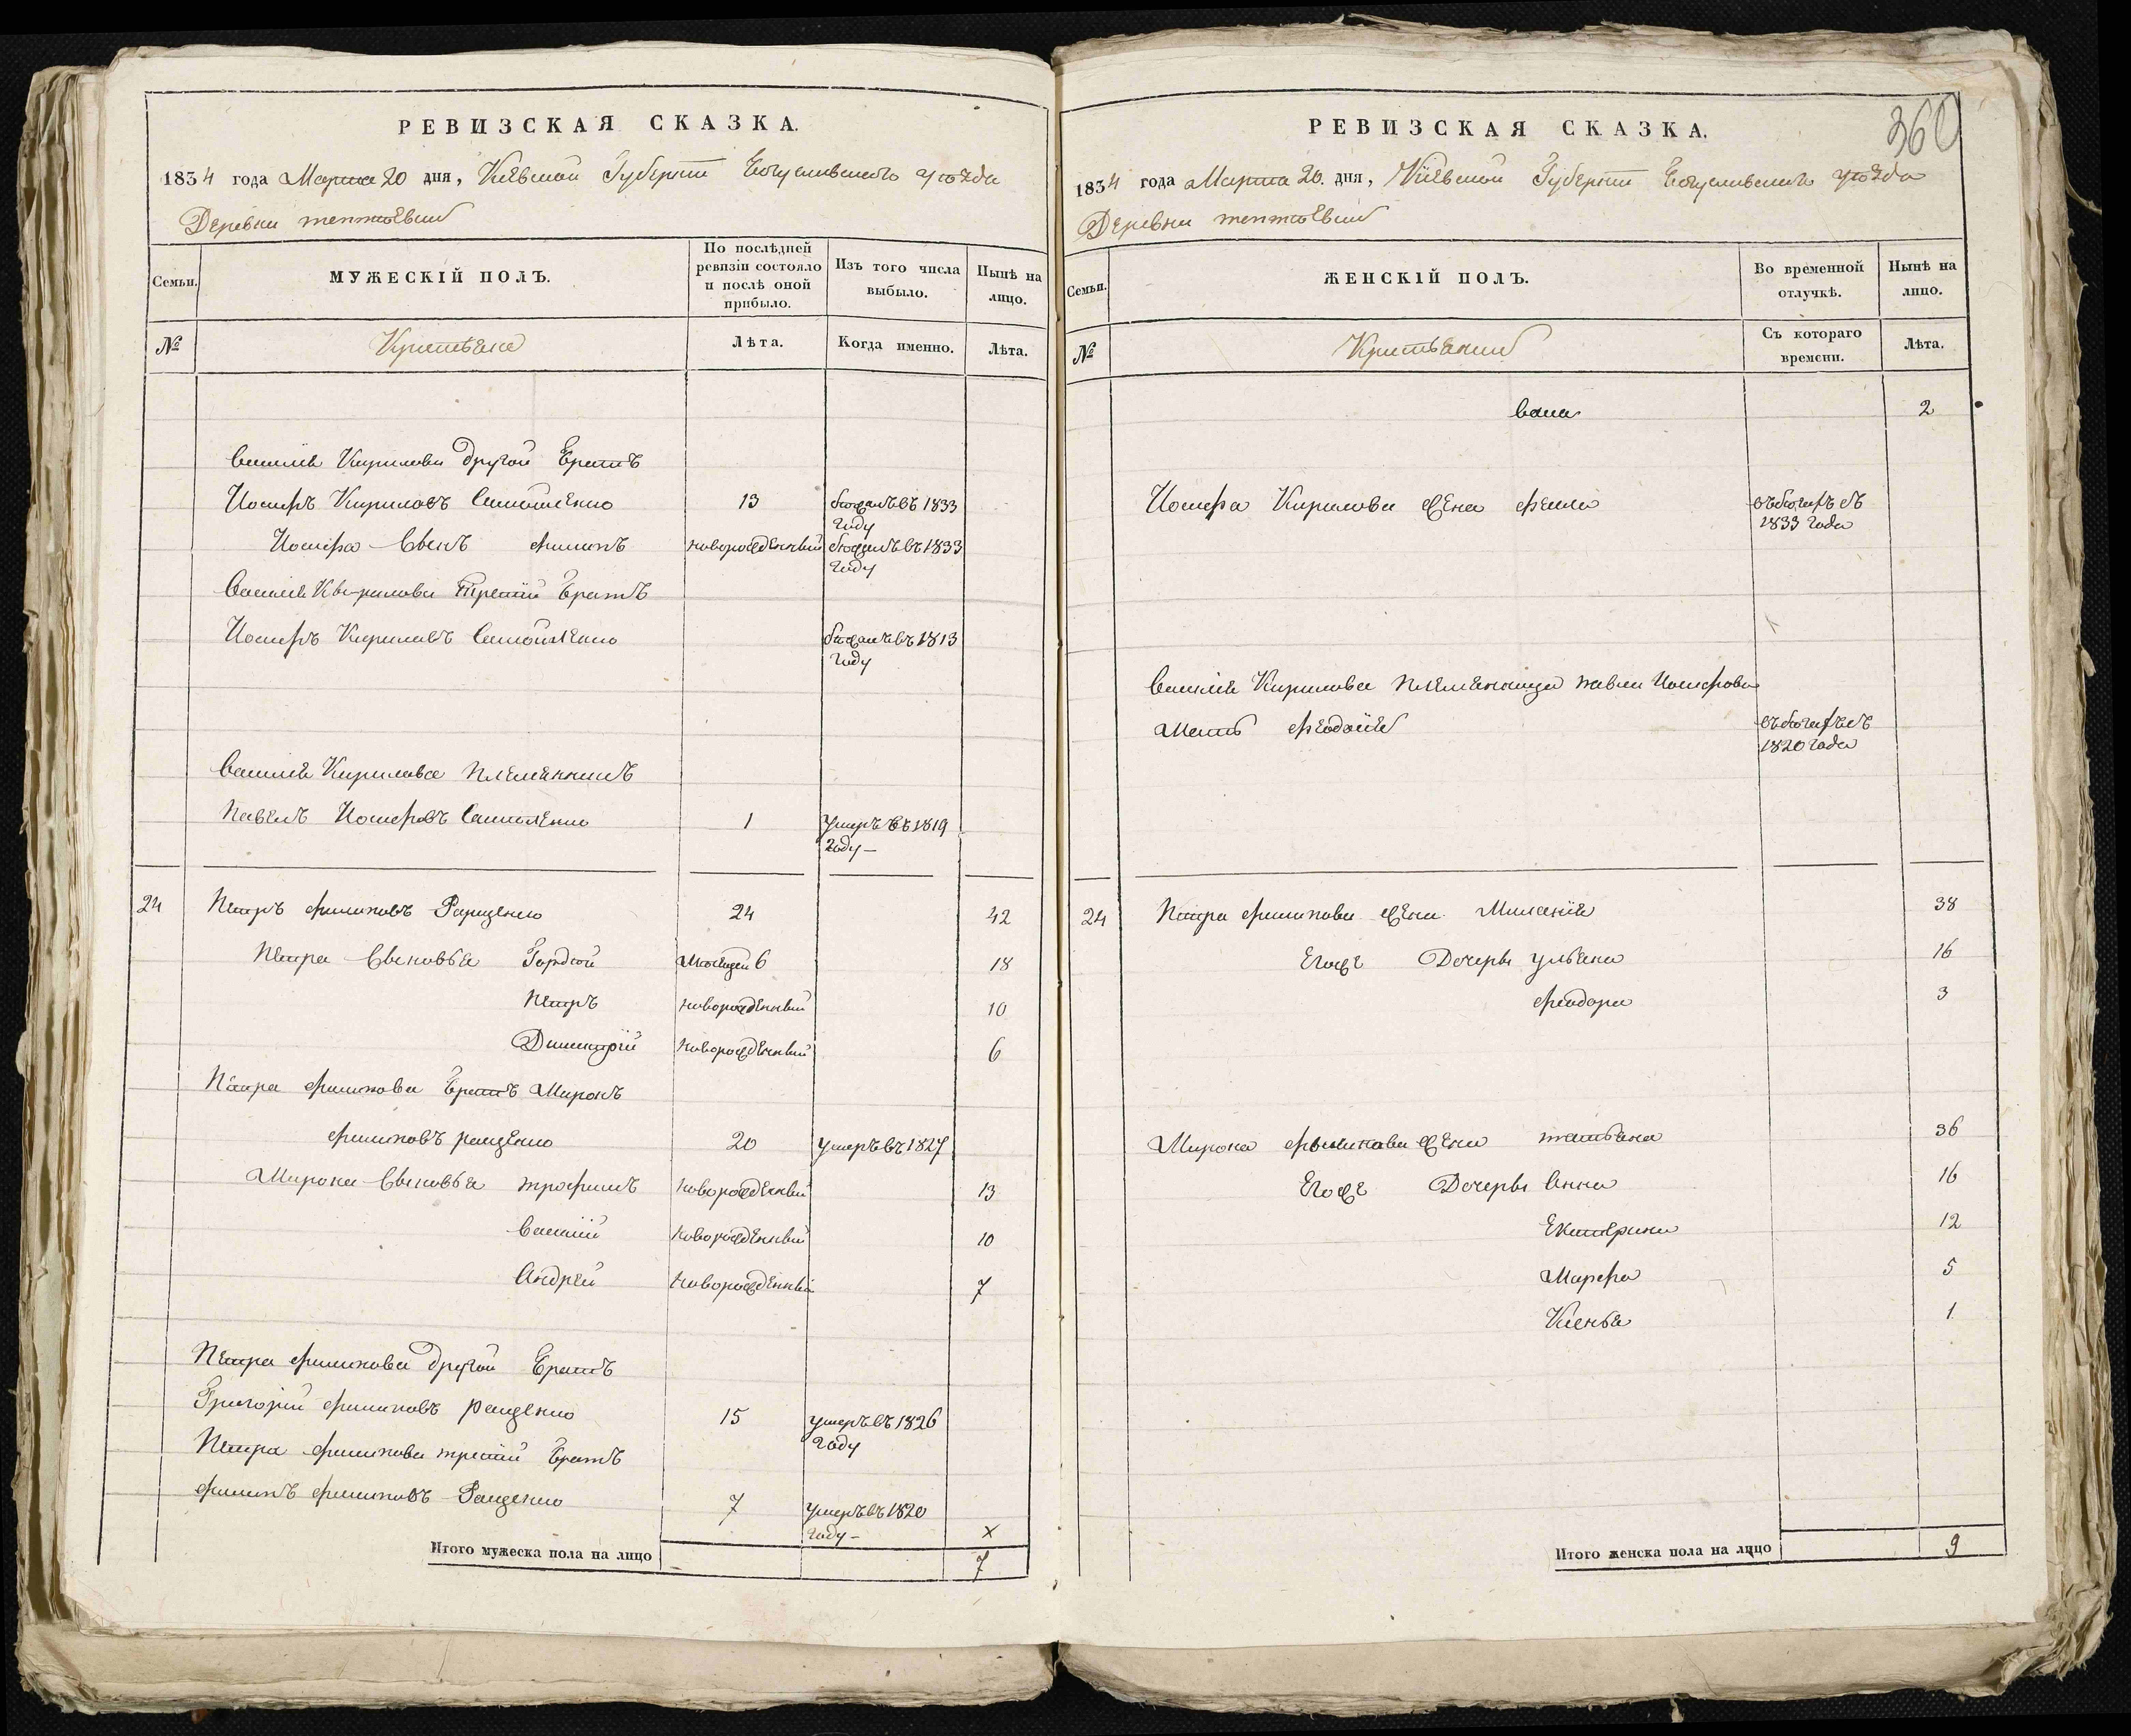 РЕВИЗСКАЯ СКАЗКА.
1834 года Марта 20 дня, Киевской Губернии Богуславского уѣзда
Деревни
Семьи.
МУЖЕСКІЙ ПОЛЪ.
По послѣдней ревизіи состояло и послѣ оной прибыло.
Изъ того числа выбыло.
Нынѣ на лицо.
№
Крестьяне
Лѣта.
Когда именно.
Лѣта.
Василія Кирилова другой братъ
Иосифъ Кириловъ Самойленко 13 бѣжалъ въ 1833 году
Иосифа Сынъ Филипъ новорожденный бѣжалъ въ 1833 году
Василія Кирилова третій братъ
Иосифъ Кириловъ Самойленко бѣжалъ въ 1813 году
Василія Кирилова племянникъ
Павелъ Иосифовъ Самойленко 1 умеръ въ 1819 году
24 Петръ Филиповъ Ращенко 24 42
Петра Сыновья Гордѣй Месяцей 6 18
Петръ новорожденный 10
Димитрій новорожденный 6
Петра Филипова братъ Миронъ
Филиповъ ращенко 20 умеръ въ 1827
Мирона Сыновья трофимъ новорожденный 13
Василій новорожденный 10
Андрей новорожденный 7
Петра Филипова другой братъ
Григорій Филиповъ ращенко 15 умеръ въ 1826 году
Петра Филипова третій братъ
Филипъ Филиповъ Ращенко 7 умеръ въ 1820 году
х
Итого мужеска пола на лицо 7
360
РЕВИЗСКАЯ СКАЗКА.
1834 года Марта 20. дня, Киевской Губернии Богуславского уѣзда
Деревни
Семьи.
ЖЕНСКІЙ ПОЛЪ.
Во временной отлучкѣ.
Нынѣ на лицо.
№
Крестьянки
Съ котораго времени.
Лѣта.
2
Иосифа Кирилова жена Фекла въ бѣгахъ съ 1833 года
Василія Кирилова племянница Павла Иосифова
Мать Феодосія въ бѣгахъ съ 1820 года
24 Петра Филипова жена Миланія 38
Егоже Дочери ульяна 16
Феодора 3
Мирона Филипова жена татьяна 36
Егоже Дочери Анна 16
Екатерина 12
Марфа 5
Ксенья 1
Итого женска пола на лицо 9